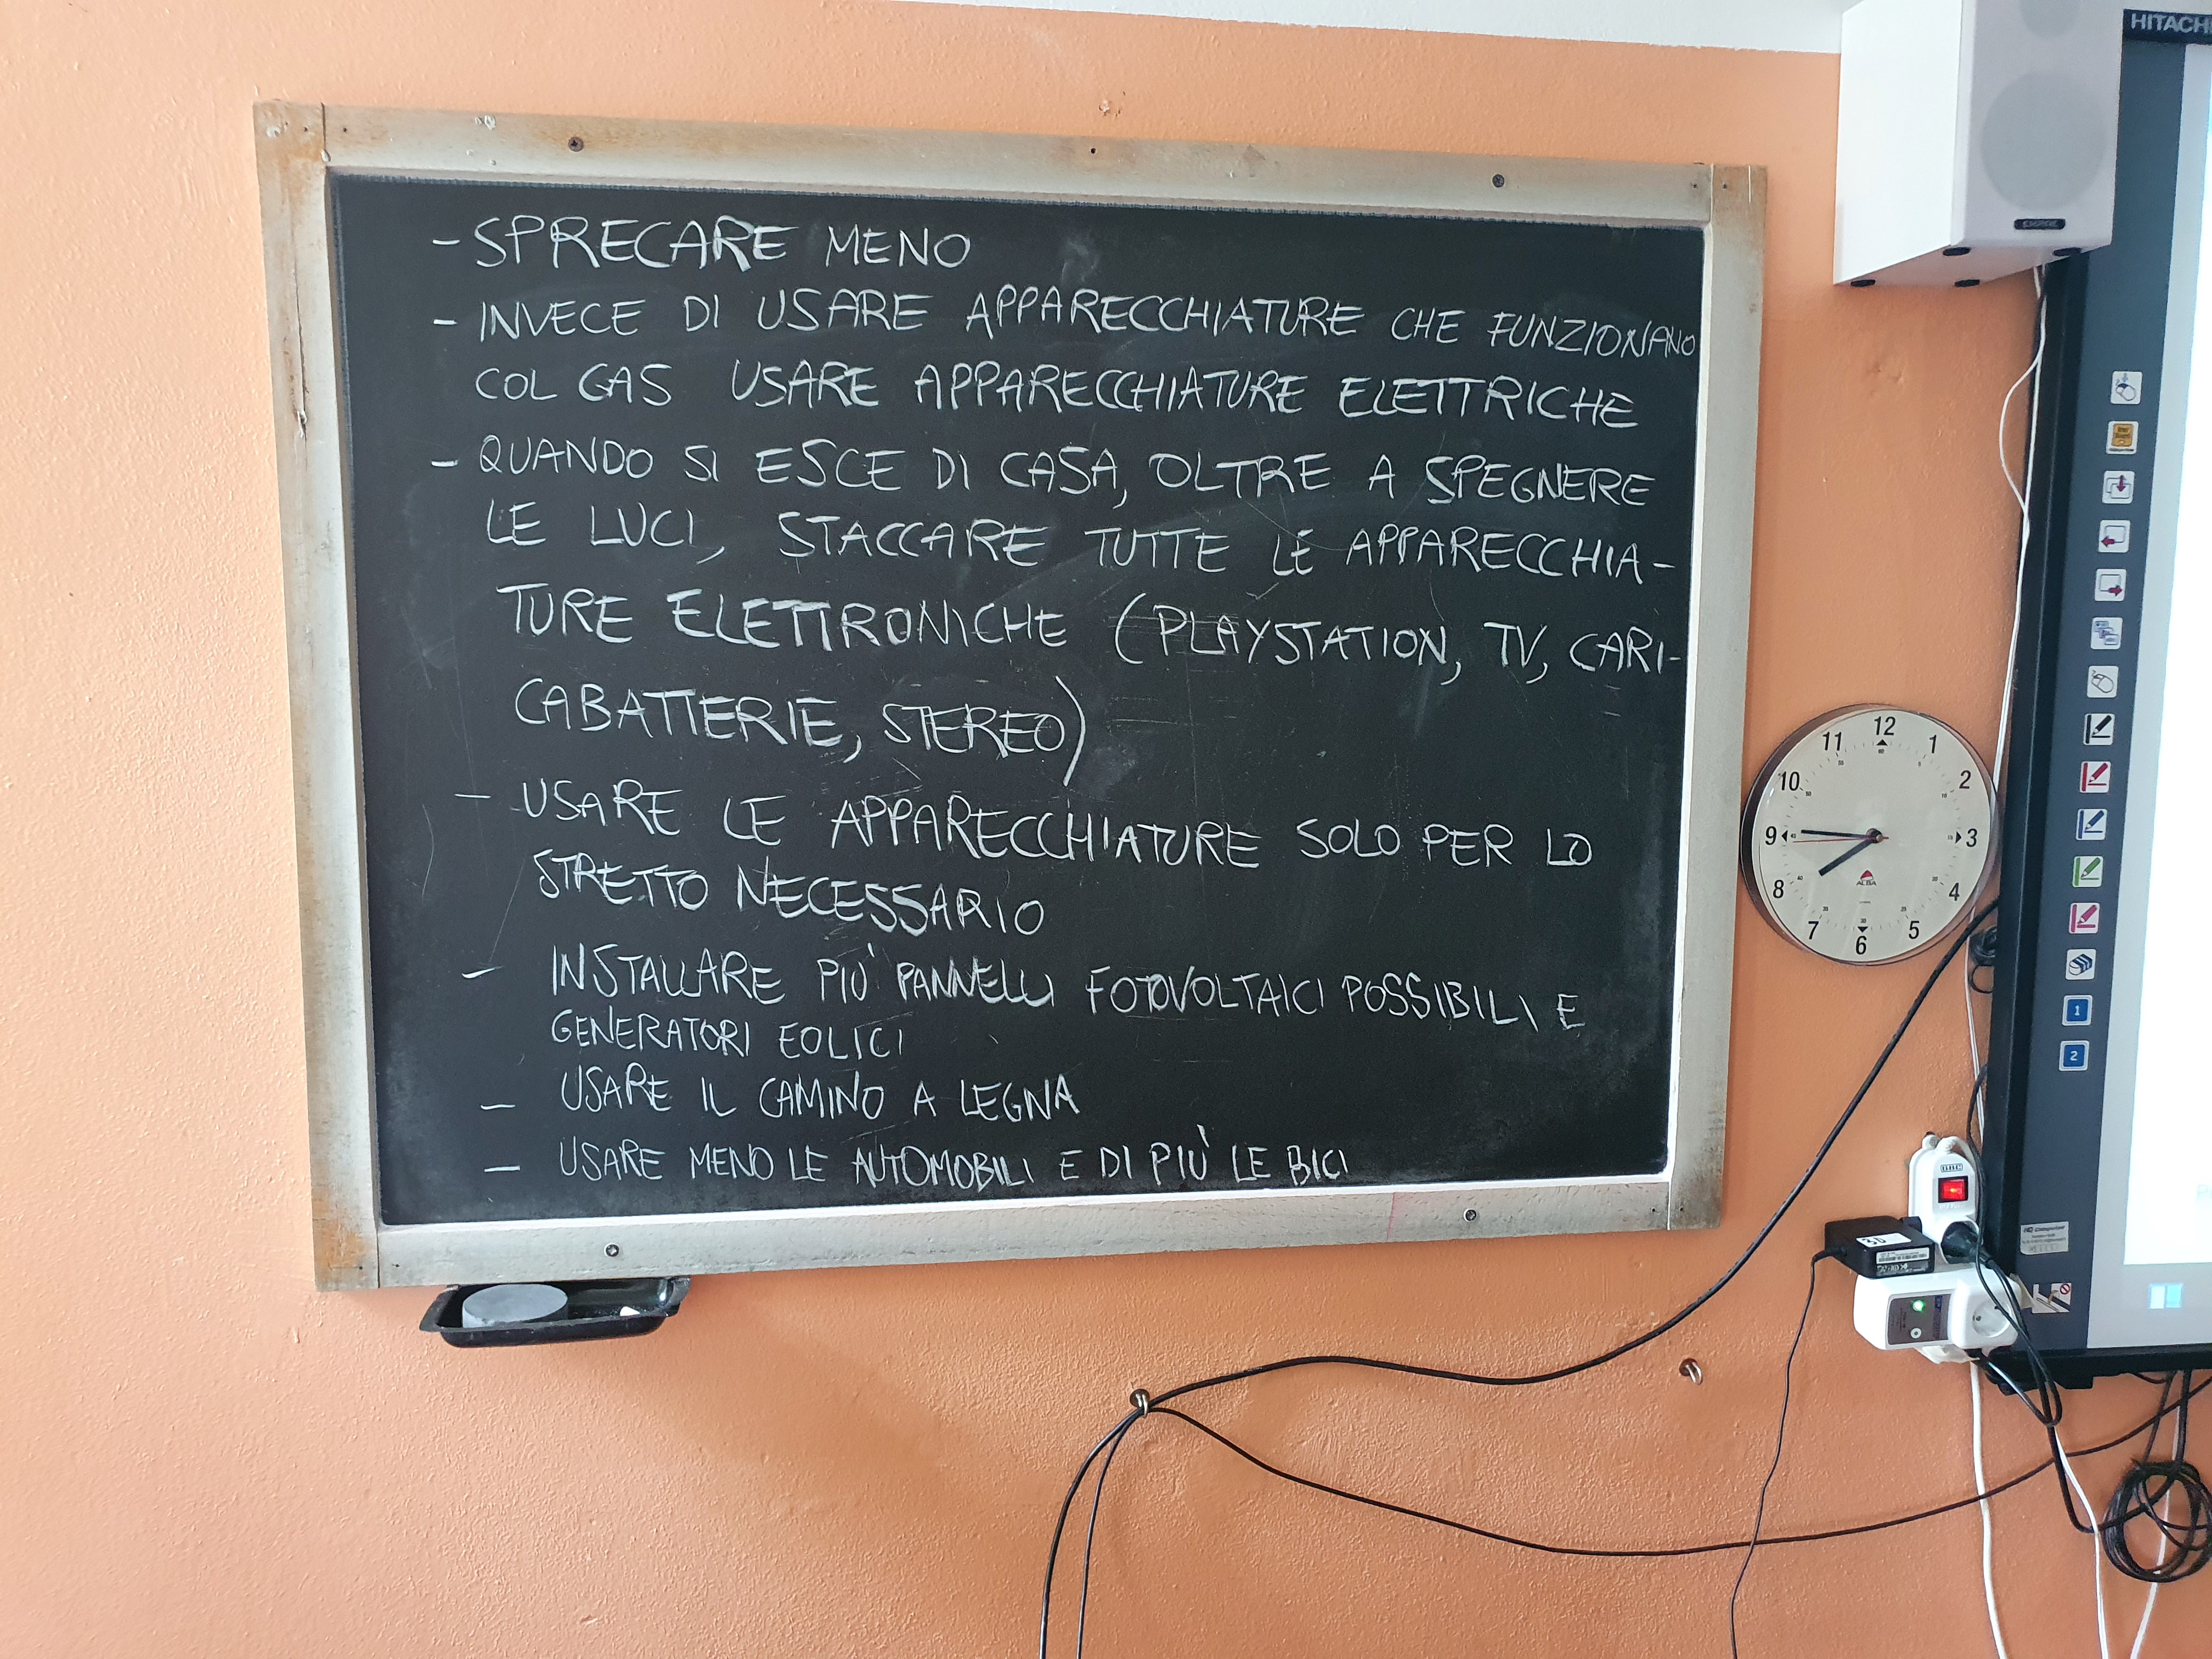 - SPRECARE MENO
- INVECE DI USARE APPARECCHIATURE CHE FUNZIONANO
COL GAS USARE APPARECCHIATURE ELETTRICHE
- QUANDO SI ESCE DI CASA, OLTRE A SPEGNERE
LE LUCI, STACCARE TUTTE LE APPARECCHIA-
TURE ELETTRONICHE (PLAYSTATION, TV, CARI-
CABATTERIE, STEREO)
- USARE LE APPARECCHIATURE SOLO PER LO
STRETTO NECESSARIO
- INSTALLARE PIU' PANNELLI FOTOVOLTAICI POSSIBILI E
GENERATORI EOLICI
- USARE IL CAMINO A LEGNA
- USARE MENO LE AUTOMOBILI E DI PIU' LE BICI
HITACHI
12
1
2
3
4
5
6
7
8
9
10
11
ALBA
1
2
3D